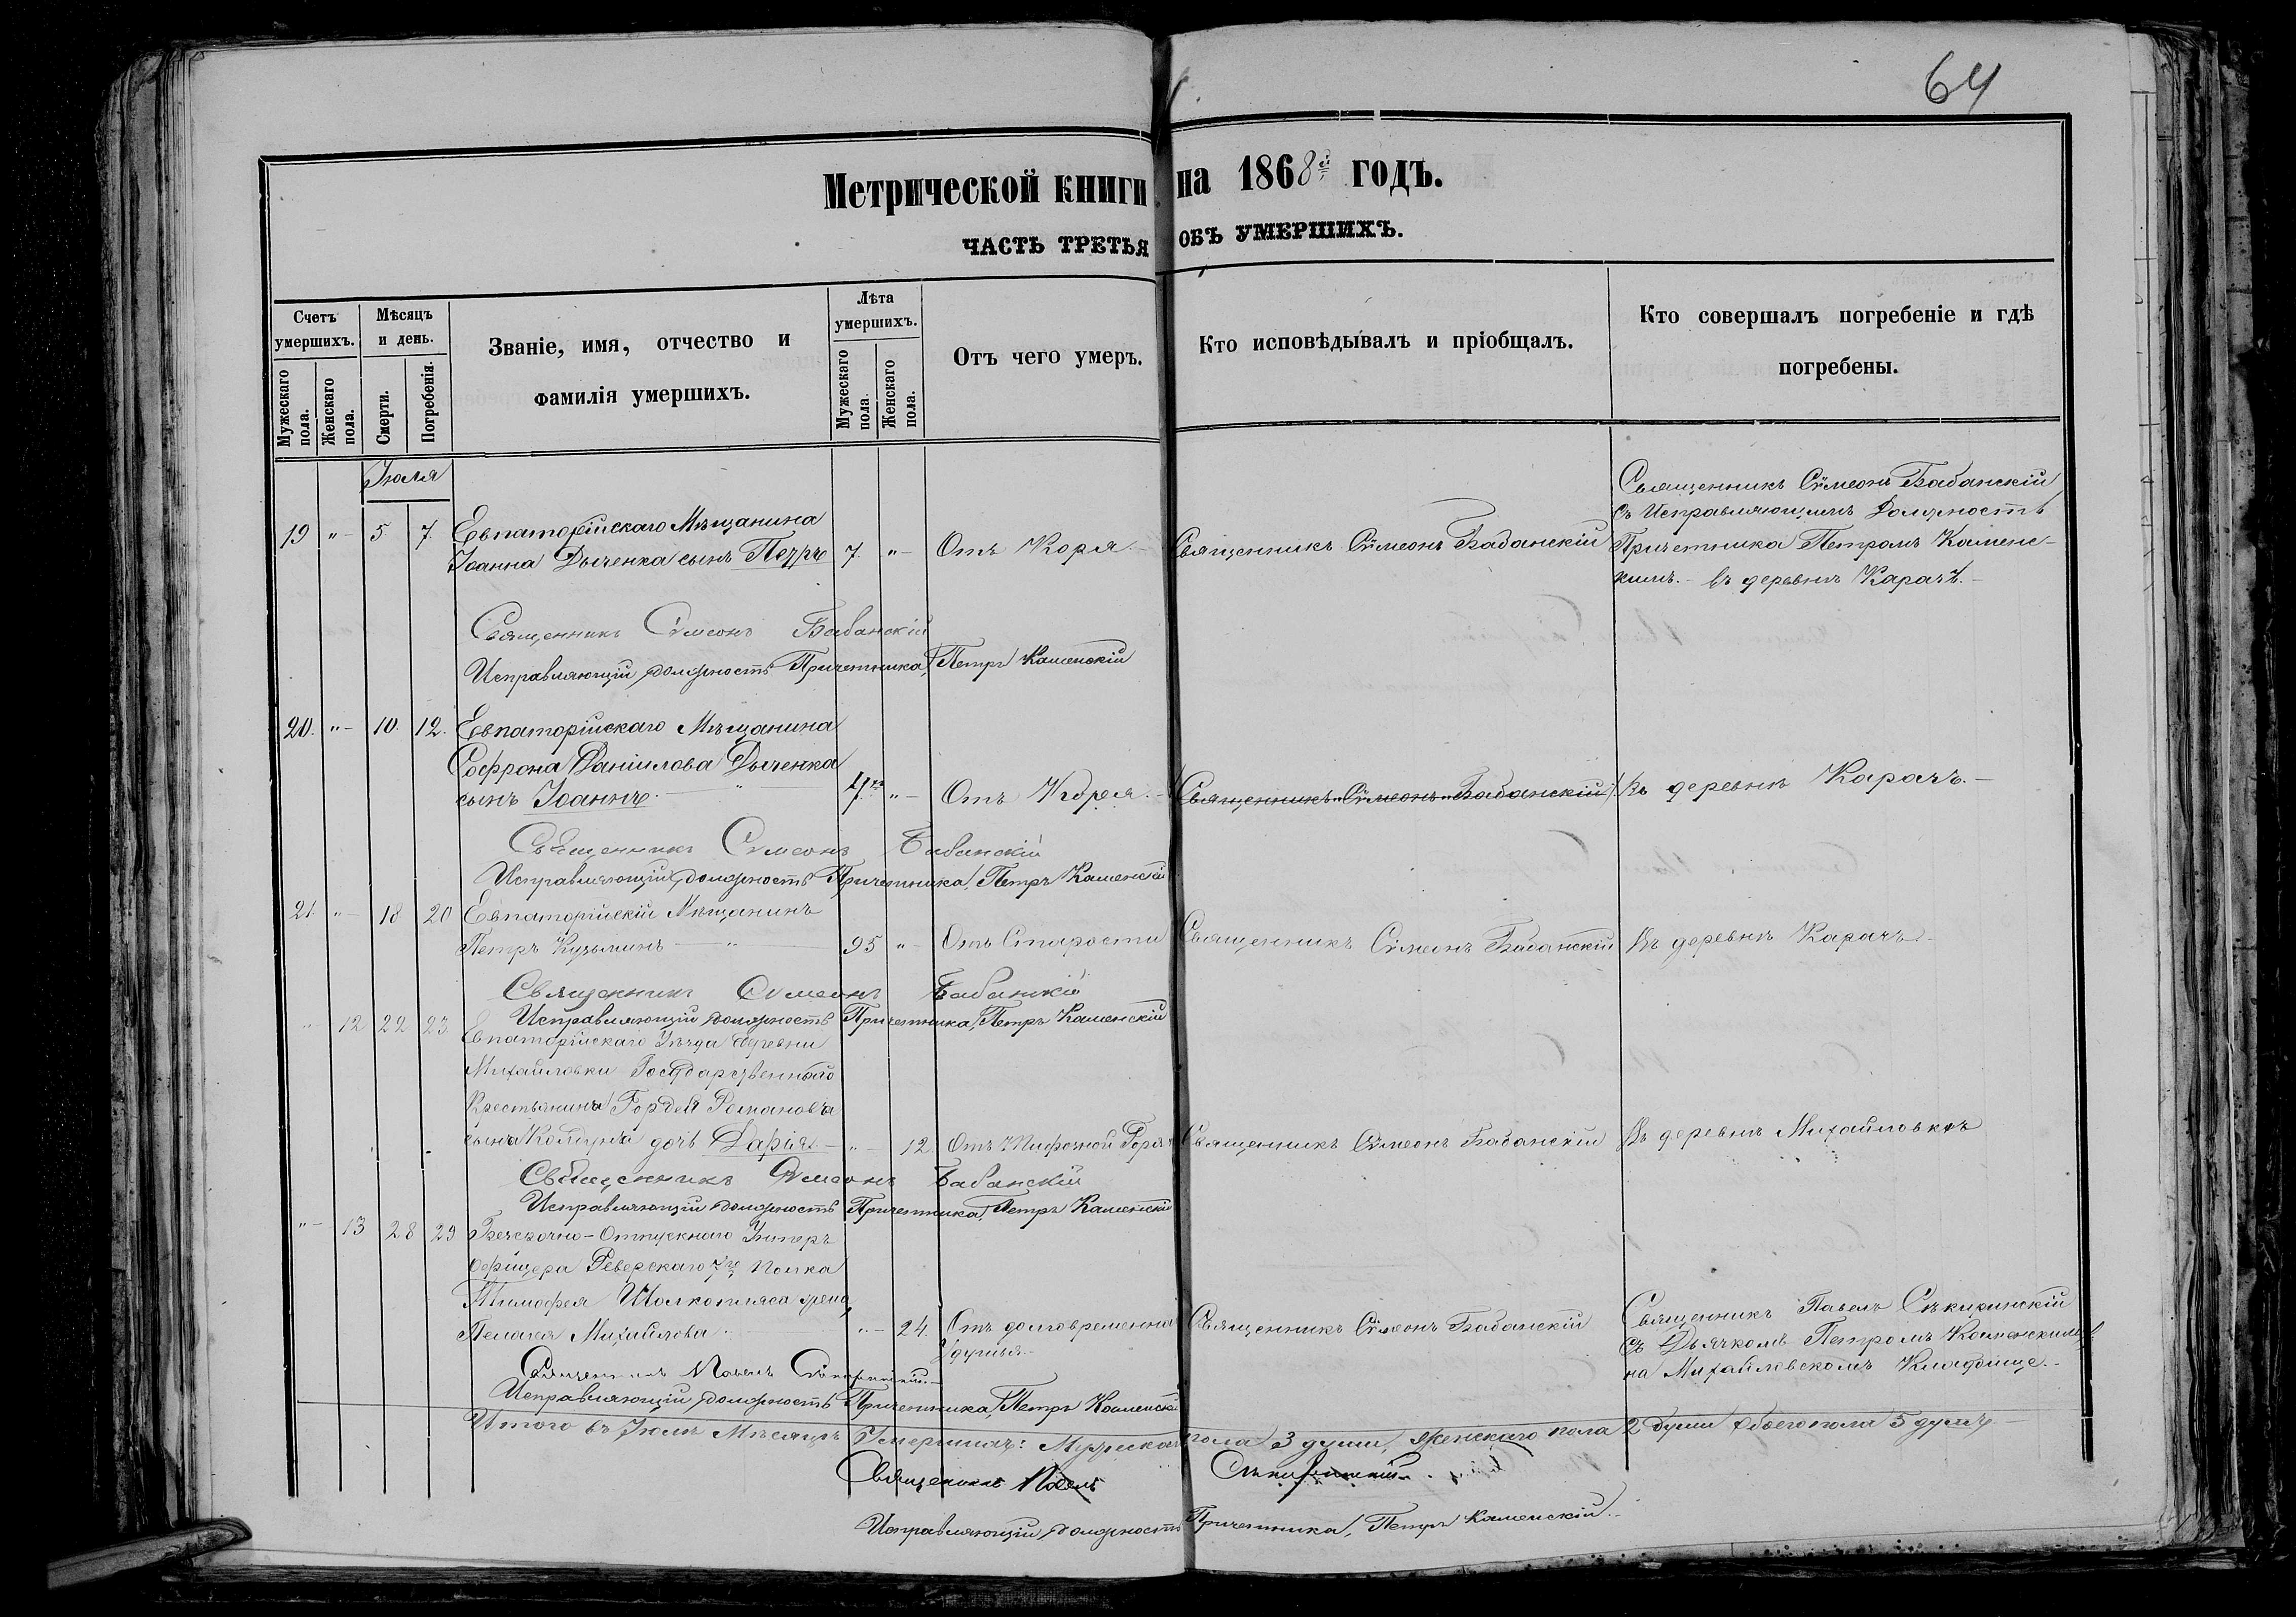 64
Метрической книги на 1868й годъ.
ЧАСТЬ ТРЕТЬЯ ОБЪ УМЕРШИХЪ.
Счетъ умершихъ.
Мужескаго пола.
Женскаго пола.
Мѣсяцъ и день.
Смерти.
Погребенія.
Званіе, имя, отчество и
фамилія умершихъ.
Лѣта умершихъ.
Мужескаго пола.
Женскаго пола.
Отъ чего умеръ.
Кто исповѣдывалъ и пріобщалъ.
Кто совершалъ погребеніе и гдѣ
погребены.
Іюля
19 „ 5 7. Евпаторійскаго Мѣщанина
Іоанна Дыченка сынъ Петръ 7. „ Отъ Коря. Священникъ Сѵмеонъ Бабанскій
Священникъ Сѵмеонъ Бабанскій
съ Исправляющимъ Должность
Причетника Петромъ Каменс-
кимъ. въ деревнѣ Карачъ.
Священникъ Сѵмеонъ Бабанскій
Исправляющій должность Причетника, Петръ Каменскій
20. „ 10. 12. Евпаторійскаго Мѣщанина
Софрона Даніилова Дыченка
сынъ Іоаннъ. „ Отъ Коря. Священникъ Сѵмеонъ Бабанскій Въ деревнѣ Карачъ.
Священникъ Сѵмеонъ Бабанскій
Исправляющій должность Причетника, Петръ Каменскій
21. „ 18 20 Евпаторійскій Мѣщанинъ
Петръ Кузьминъ 95 „ Отъ Старости Священникъ Сѵмеонъ Бабанскій Въ деревнѣ Карачъ.
Священникъ Сѵмеонъ Бабанскій
Исправляющій должность Причетника, Петръ Каменскій
„ 12 22 23 Евпаторійскаго Уѣзда деревни
Михайловки Государственнаго
Крестьянина Гордея Романова
сына Колдуна дочь Дарія „ 12 Отъ Священникъ Сѵмеонъ Бабанскій Въ деревнѣ Михайловкѣ
Священникъ Сѵмеонъ Бабанскій
Исправляющій должность Причетника, Петръ Каменскій
„ 13 28 29 Безсрочно-Отпускнаго Унтеръ
офицера полка
Тимофея жена,
Пелагея Михайлова. „ 24. Отъ долговременна Священникъ Сѵмеонъ Бабанскій
Удушья
Священникъ Павелъ Сѣкиринскій
съ Дьячкомъ Петромъ Каменскимъ
на Михайловскомъ Кладбище.
Священникъ Павелъ Сѣкиринскій.
Исправляющій должность Причетника, Петръ Каменскій
Итого въ Іюлѣ Мѣсяцѣ Умершихъ: Мужеска пола 3 души, женскаго пола 2 души обоего пола 5 душъ
Священникъ Павелъ Сѣкиринскій.
Исправляющій должность Причетника, Петръ Каменскій.